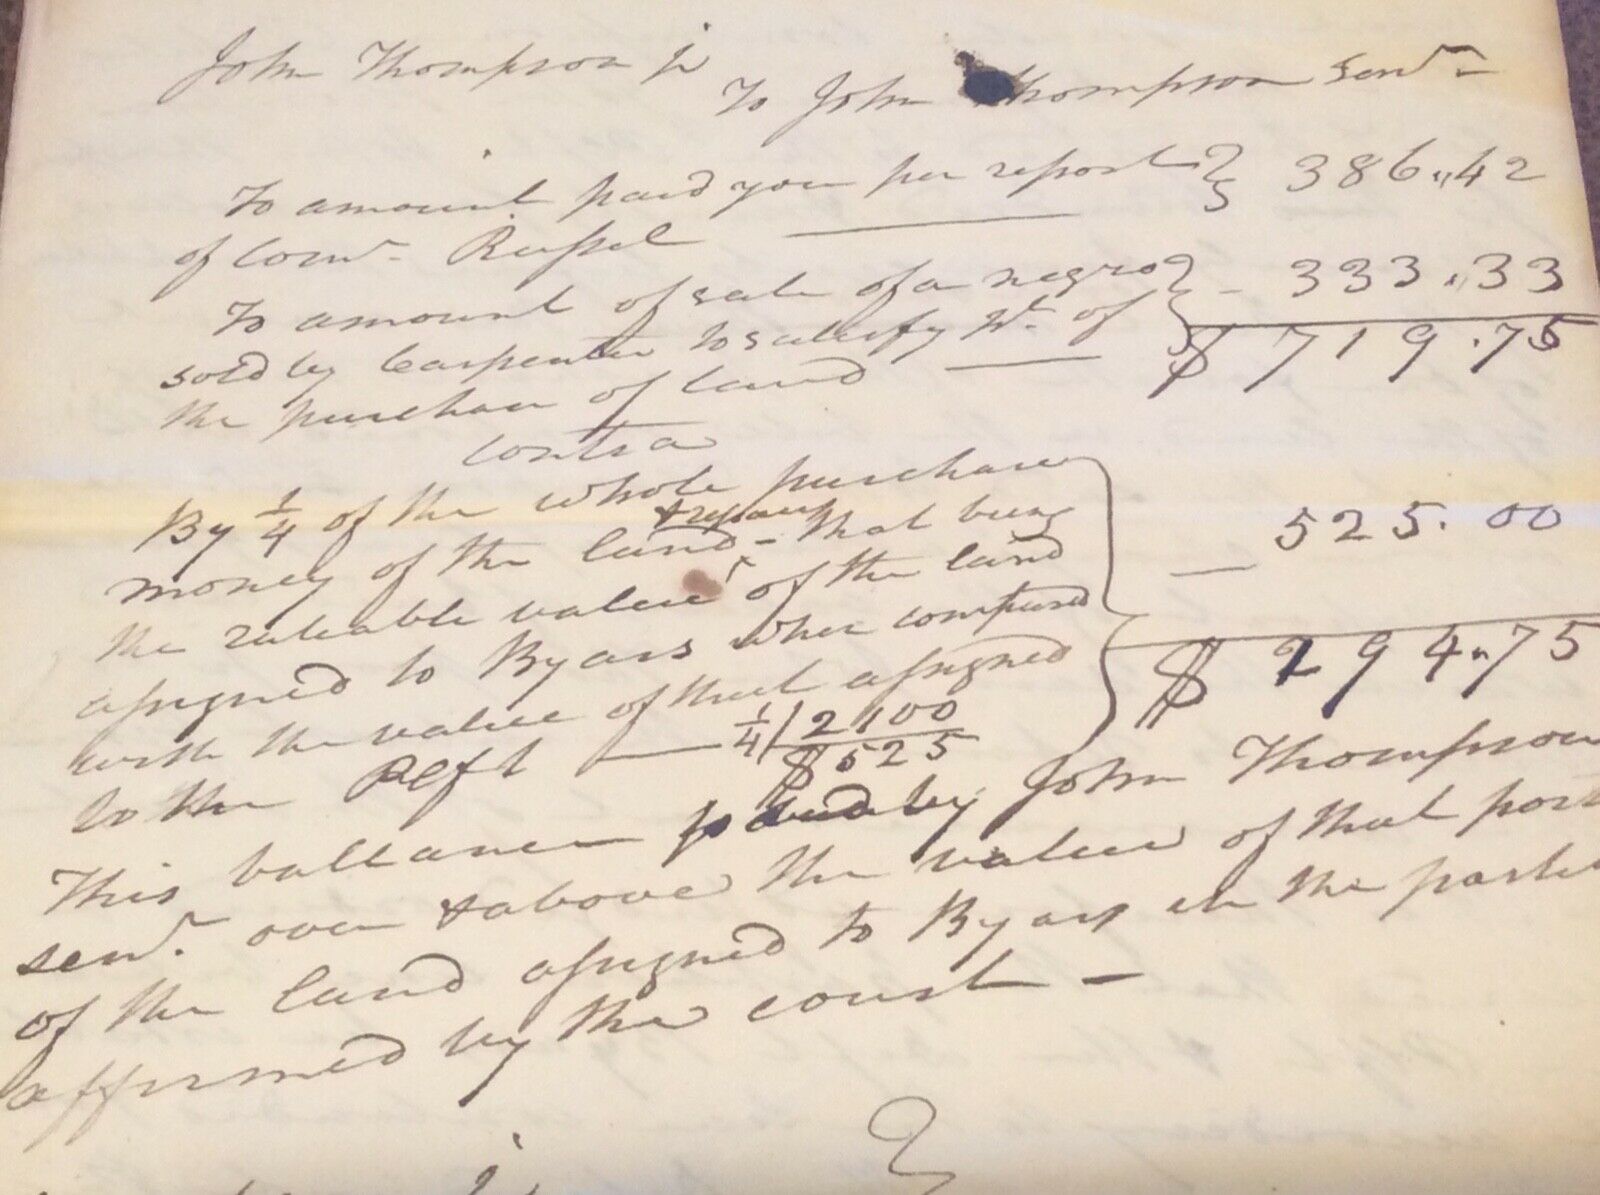 John Thompson jr
To John Thompson Senr.
To amount paid you per report } 386.,42
of Comr. Russel
To amount of sale of a negro } 333.,33
sold by Carpenter to satisfy Dt. of
$ 719.75
the purchase of land
Contra
By 1/4 of the whole purchase
money of the land - that being 525.00
the rateable value of the land
assigned to Byars when compared
$ 294.,75
with the value of that assigned
to the Plft 1/4 | 2100
$ 525
This ballance paid by John Thompson
senr. over & above the value of that part
of the land assigned to Byars in the
affirmed by the court -